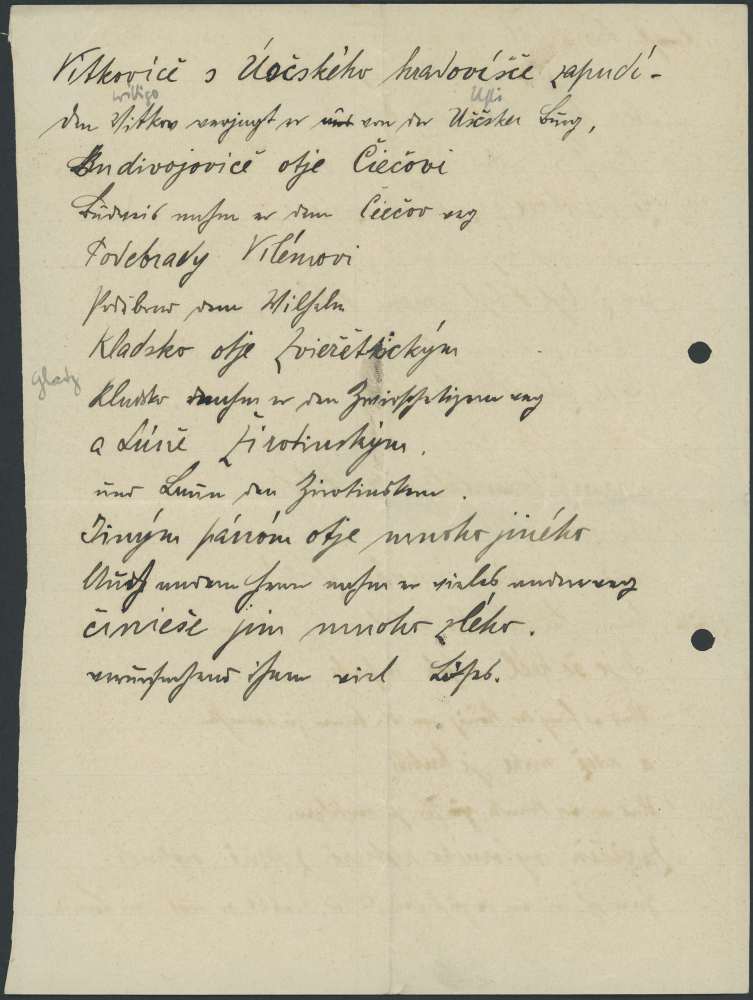 Vítkovicě s Úsčského hradovišče zapudi -
Wittigo Usti
den Vitkov verjagt er von der Uščsker Burg,
Budivojovicě otje Čiečovi
Budweis nahm er dem Čiečov weg
Podebrady Vilémovi
Podibrad dem Wilhelm
Kladsko otje Zvieřětickým
Glatz
Kladsko nahm er den Zwirschetigern weg
a Lúně Žirotinským,
und Laun den Zirotinskern.
Jiným pánóm otje mnoho jiného
Auch andern Herrn nahm er vieles andere weg
činieše jim mnoho zlého.
verursachend ihnen viel Böses.